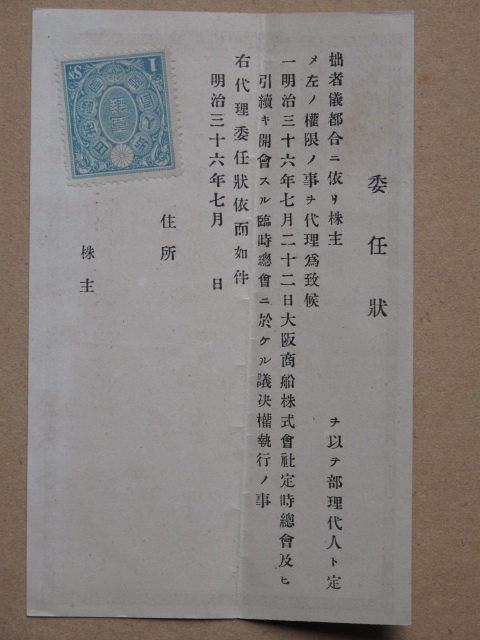 委任狀
拙者儀都合ニ依リ株主　　　　ヲ以テ部理代人ト定
メ左ノ權限ノ事ヲ代理爲致候
一明治三十六年七月二十二日大阪商船株式會社定時總會及ヒ
引續キ開會スル臨時總會ニ於ケル議決權執行ノ事
右代理委任狀依而如件
明治三十六年七月　　日
住所
株主
1
SN